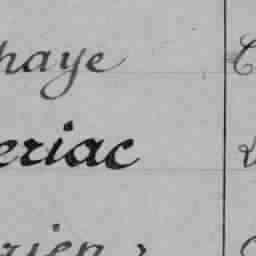 haye
eriac
rien,